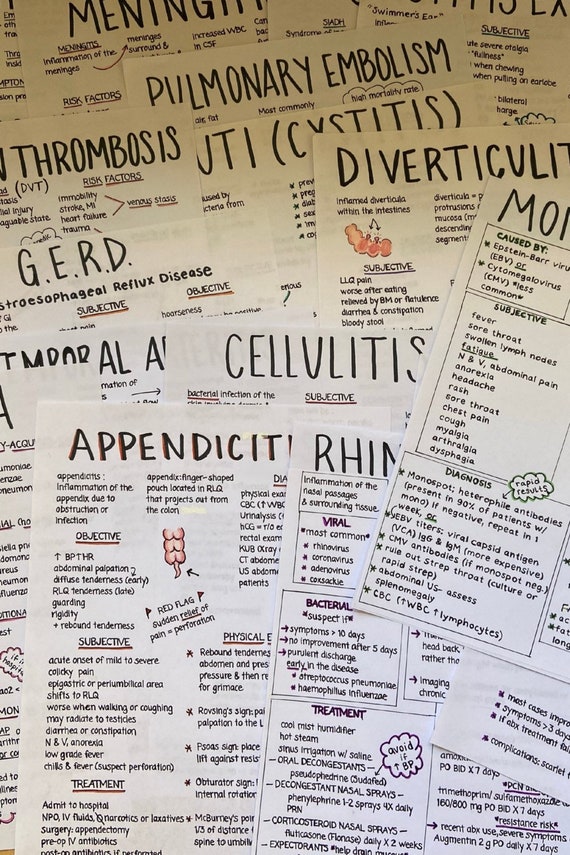 MENINGIT
MENINGITIS
Inflammation of the
meninges
meninges
surround &
increased WBC
in CSF
RISK FACTORS
SIADH
Syndrome of
"Swimmer's Ear"
SUBJECTIVE
severe otalgia
"fullness"
when chewing
when pulling on earlobe
bilateral
PULMONARY EMBOLISM
fat
Most commonly
high mortality rate
THROMBOSIS
(DVT)
stasis
RISK FACTORS
immobility
stroke, MI
heart failure
trauma
venous stasis
UTI (CYSTITIS)
used by
bacteria from
DIVERTICULIT
inflamed diverticula
within the intestines
diverticula =
protrusions
mucosa
descending
segment
SUBJECTIVE
LLQ pain
worse after eating
relieved by BM or flatulence
diarrhea & constipation
bloody stool
G.E.R.D.
stroesophageal Reflux Disease
SUBJECTIVE
OBJECTIVE
hoarseness
MO
CAUSED BY:
* Epstein-Barr viru
(EBV) or
* Cytomegalovirus
(CMV) *less
common*
SUBJECTIVE
fever
sore throat
swollen lymph nodes
fatigue
N & V, abdominal pain
anorexia
headache
rash
sore throat
chest pain
cough
myalgia
arthralgia
dysphagia
DIAGNOSIS
rapid
results
* Monospot: heterophile antibodies
(present in 90% of patients w/
mono) if negative, repeat in 1
week or
* EBV titers: viral capsid antigen
(VCA) IgG & IgM (more expensive)
* CMV antibodies (if monospot neg.)
* rule out strep throat (culture or
rapid strep)
* abdominal US- assess
splenomegaly
* CBC (↑WBC ↑lymphocytes)
CELLULITIS
bacterial infection of the
SUBJECTIVE
APPENDICITI
appendicitis :
Inflammation of the
appendix due to
obstruction or
infection
appendix: finger-shaped
pouch located in RLQ
that projects out from
the colon
OBJECTIVE
↑ BP↑HR
abdominal palpation
diffuse tenderness (early)
RLQ tenderness (late)
guarding
rigidity
+ rebound tenderness
RED FLAG
Sudden relief of
pain = perforation
SUBJECTIVE
acute onset of mild to severe
colicky pain
epigastric or periumbilical area
shifts to RLQ
worse when walking or coughing
may radiate to testicles
diarrhea or constipation
N & V, anorexia
low grade fever
chills & fever (suspect perforation)
TREATMENT
Admit to hospital
NPO, IV fluids, Ø narcotics or laxatives
surgery: appendectomy
pre-op IV antibiotics
post-op antibiotics if perforated
DIA
physical exam
CBC (↑ WB
Urinalysis (
hCG = r/o e
rectal exam
KUB (Xray
CT abdome
US abdome
patients
PHYSICAL E
* Rebound tendern
abdomen and pres
pressure & then re
for grimace
* Rovsing's sign:
palpation to the L
* Psoas sign: place
lift against resist
* Obturator sign:
internal rotation
* McBurney's poin
1/3 of distance f
spine to umbilic
RHIN
Inflammation of the
nasal passages
& surrounding tissue
VIRAL
*most common*
* rhinovirus
* coronavirus
* adenovirus
* coxsackie
BACTERIAL
*suspect if*
→ symptoms > 10 days
→ no improvement after 5 days
→ purulent discharge
early in the disease
* streptococcus pneumoniae
* haemophilus influenzae
TREATMENT
cool mist humidifier
hot steam
sinus irrigation w/ saline
avoid
if
↑ BP
— ORAL DECONGESTANTS —
pseudophedrine (Sudafed)
— DECONGESTANT NASAL SPRAYS —
phenylephrine 1-2 sprays 4X daily
PRN
— CORTICOSTEROID NASAL SPRAYS
fluticasone (Flonase) daily X 2 weeks
— EXPECTORANTS *help drain mucus*
head back
rather tha
→ imaging
chronic
* most cases impro
* symptoms >3 days
* if abx treatment fail
* complications: scarlet f
PO BID X 7 days
*PCN
trimethoprim/ sulfamethoxazole
160/800 mg PO BID X 7 days
*resistance risk*
* recent abx use, severe symptoms
Augmentin 2 g PO daily x 7 days